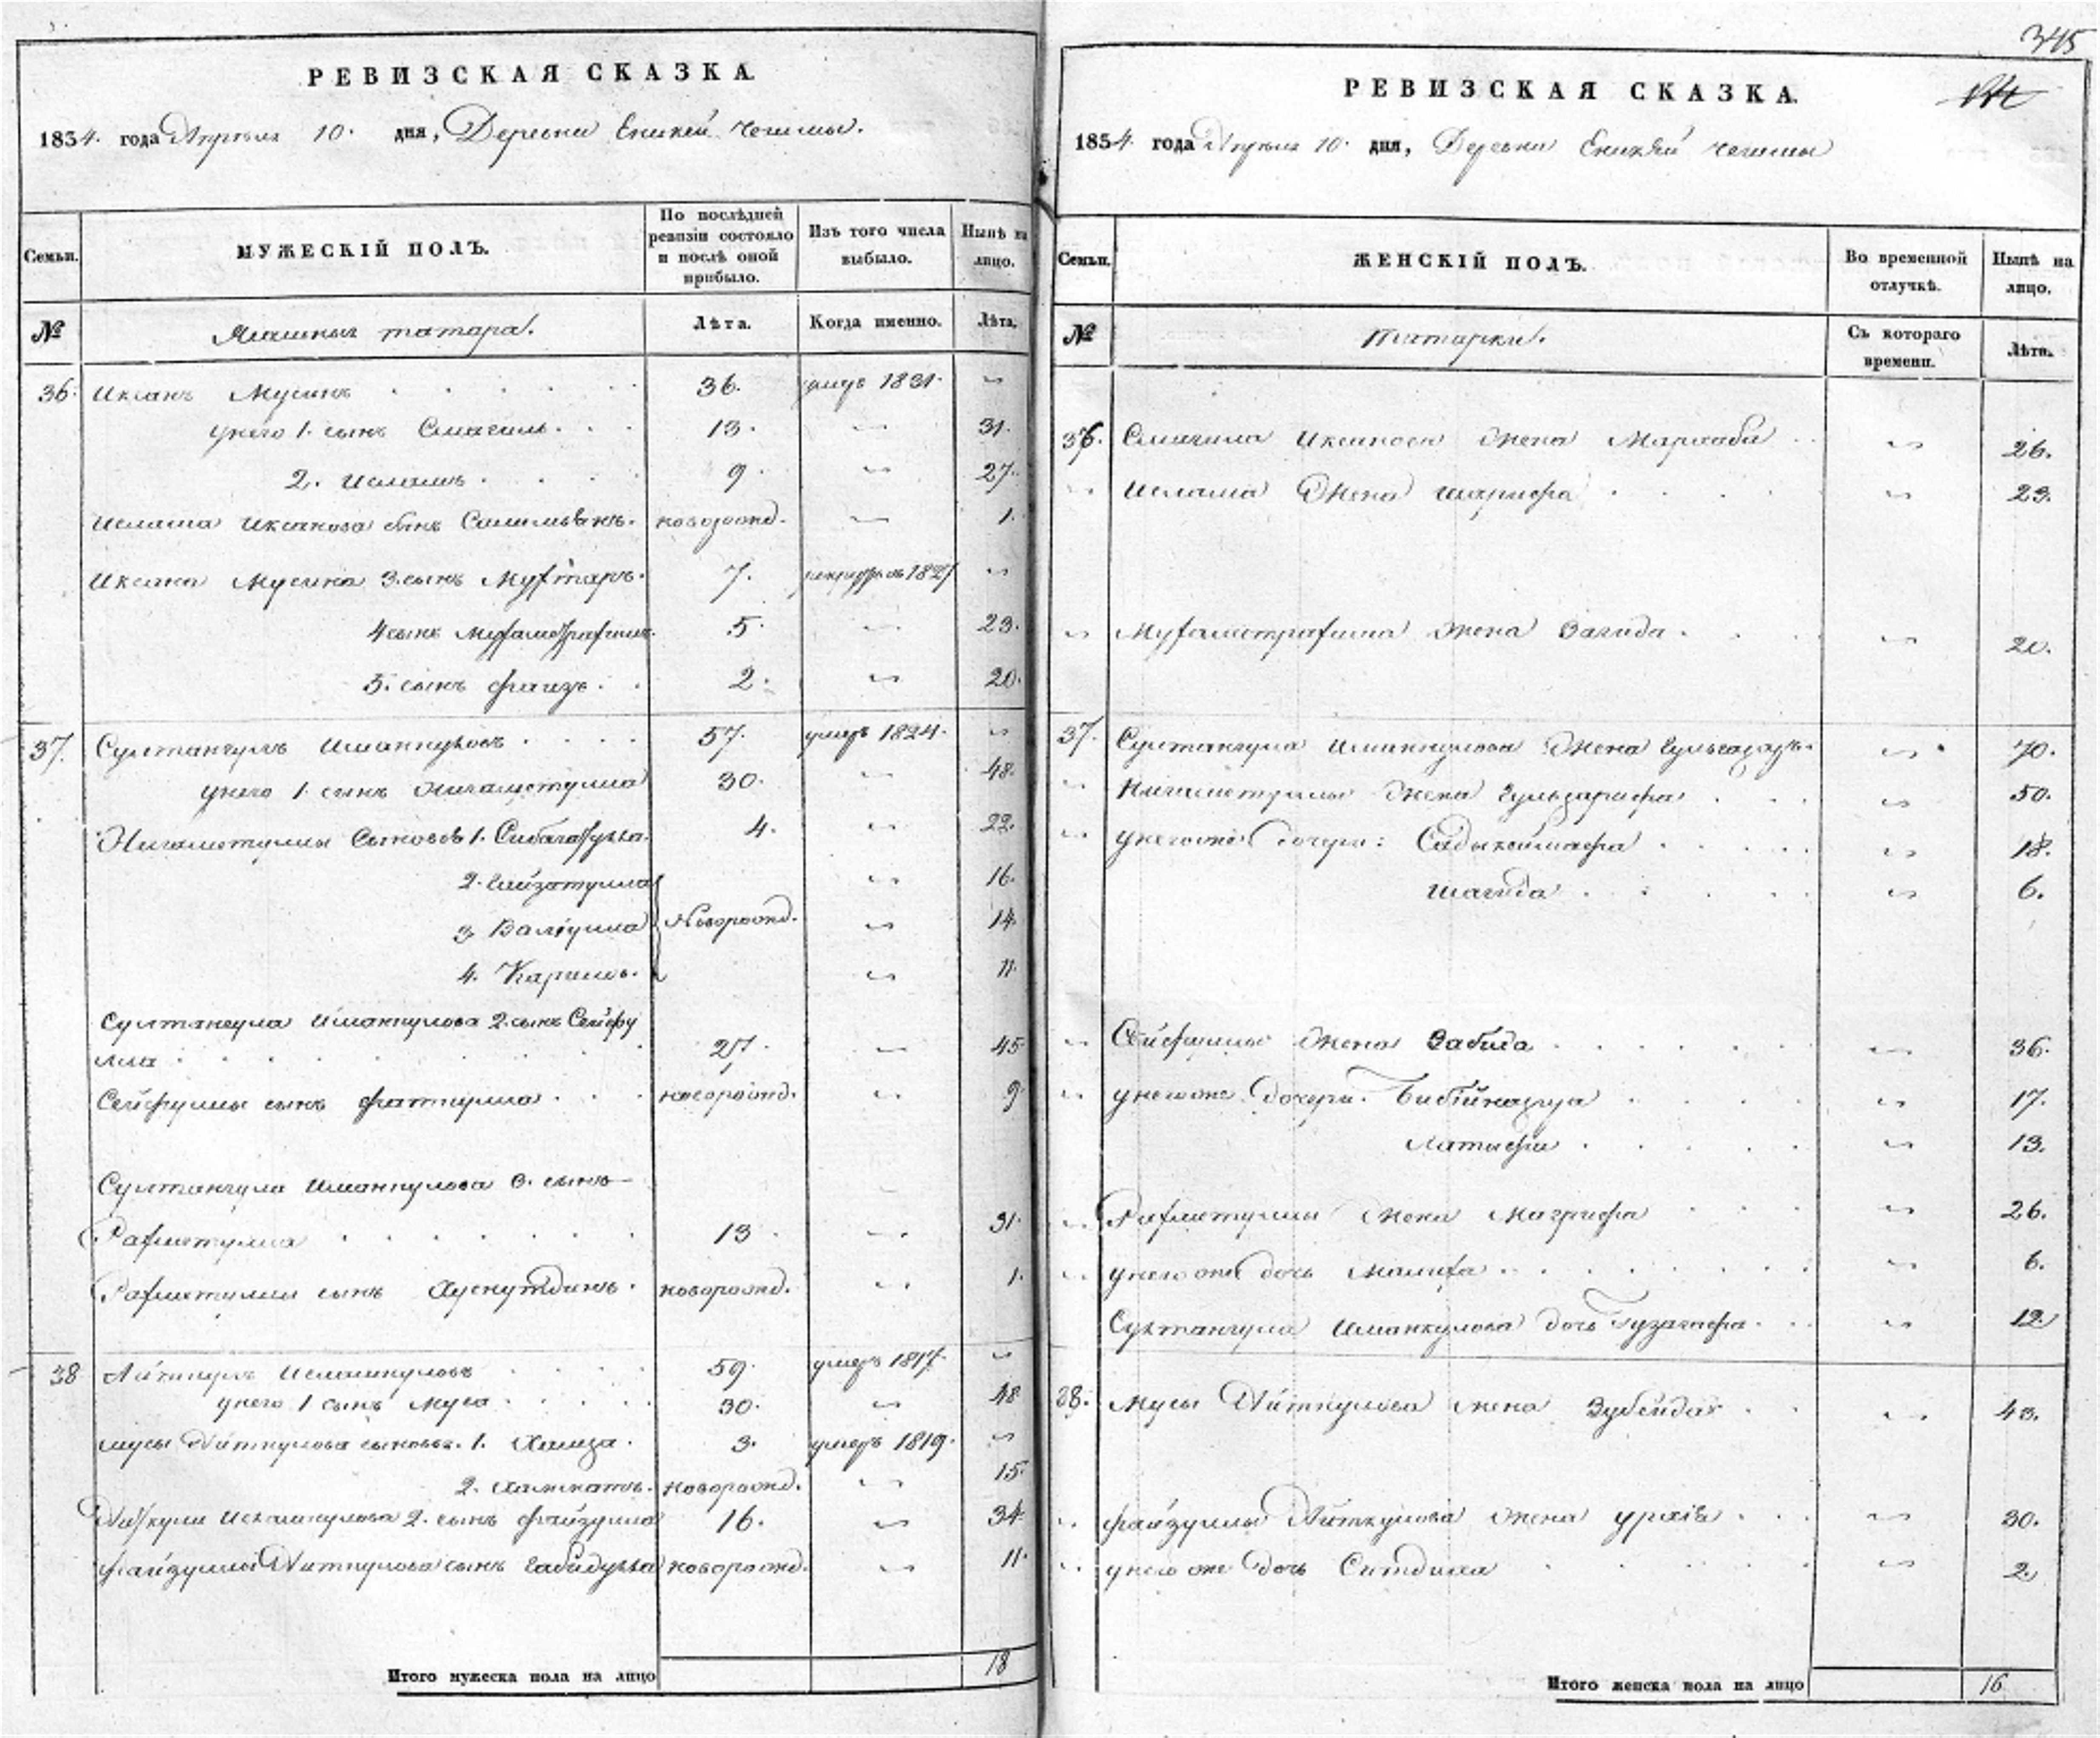 345
РЕВИЗСКАЯ СКАЗКА.
1834. года Апреля 10. дня, Деревни Еникей Чишмы.
Семьи.
МУЖЕСКІЙ ПОЛЪ.
По послѣдней ревизіи состояло и послѣ оной прибыло.
Изъ того числа выбыло.
Нынѣ на лицо.
№
татара.
Лѣта.
Когда именно.
Лѣта.
36. Иксанъ Мусинъ 36. умеръ 1831.
у него 1. сынъ Смагиль. 13. 31.
2. Исламъ. 9. 27.
Ислама Иксанова сынъ новорожд. 1.
Иксана Мусина 3. сынъ Мухтаръ. 7. 1827
4 сынъ 5. 23.
5. сынъ Фаизъ. 2. 20.
37. Султангулъ Иманкуловъ 57. умеръ 1824.
у него 1. сынъ Нигаметулла 30. 48.
Нигаметуллы сыновья 1. Сибагатулла. 4. 22.
2. Гайзатулла 16.
3. Валіулла Новорожд. 14.
4. Каримъ. 11.
Султангула Иманкулова 2. сынъ Сейфу
лла 27. 45
Сейфуллы сынъ Фаткулла новорожд. 9.
Султангула Иманкулова 3. сынъ
Рахметулла 13. 31.
Рахметуллы сынъ Хуснутдинъ. новорожд. 1.
38 Айткулъ Исламкуловъ 59. умеръ 1817.
у него 1 сынъ Муса 30. 48
Мусы Айткулова сыновья. 1. Хамза. 3. умеръ 1819.
2. новорожд. 15.
Айткула Исламкулова 2. сынъ Файзулла 16. 34
Файзуллы Айткулова сынъ Габидулла новорожд. 11.
Итого мужеска пола на лицо 18
РЕВИЗСКАЯ СКАЗКА.
1834. года Апреля 10. дня, Деревни Еникей Чишмы
Семьи.
ЖЕНСКІЙ ПОЛЪ.
Во временной отлучкѣ.
Нынѣ на лицо.
№
Татарки.
Съ котораго времени.
Лѣта.
36. Смагила Иксанова жена 26.
Ислама жена Шарифа 23.
жена Загида. 20.
37. Султангула Иманкулова жена 70.
Нигаметуллы жена Гульзарифа 50.
у него же дочери: 18.
Шагида 6.
Сейфуллы жена Забида 36.
у него же дочери. 17.
Латифа 13.
Рахметуллы жена 26.
у него же дочь 6.
Султангула Иманкулова дочь 12
38. Мусы Айткулова жена Зубейда 43.
Файзуллы Айткулова жена 30.
у него же дочь Ситдика 2.
Итого женска пола на лицо 16